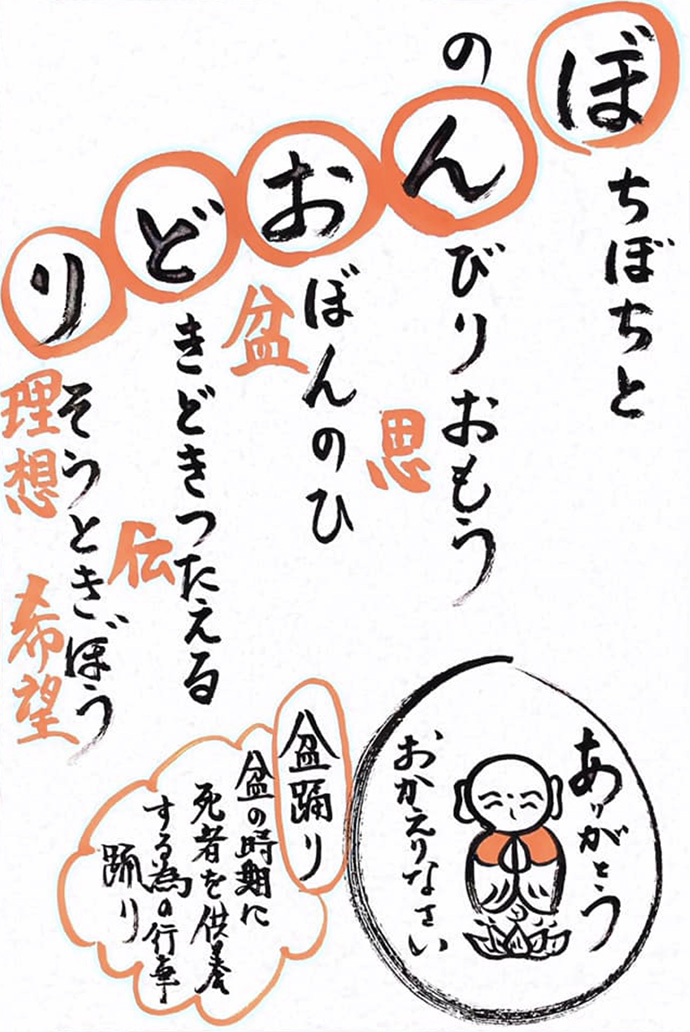 ぼちぼちと
のんびりおもう
思
おぼんのひ
盆
どきどきつたえる
伝
りそうときぼう
理想
希望
ありがとう
おかえりなさい
盆踊り
盆の時期に
死者を供養
する為の行事
踊り